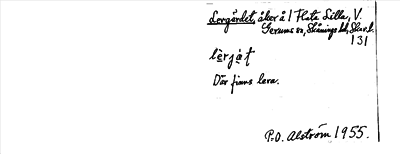 Lergärdet, åker å 1 Flata Lilla, V.
Gerums sn, Skånings hd, Skar. l.
131
lèrjạt
Där finns lera.
P.O. Alström 1955.